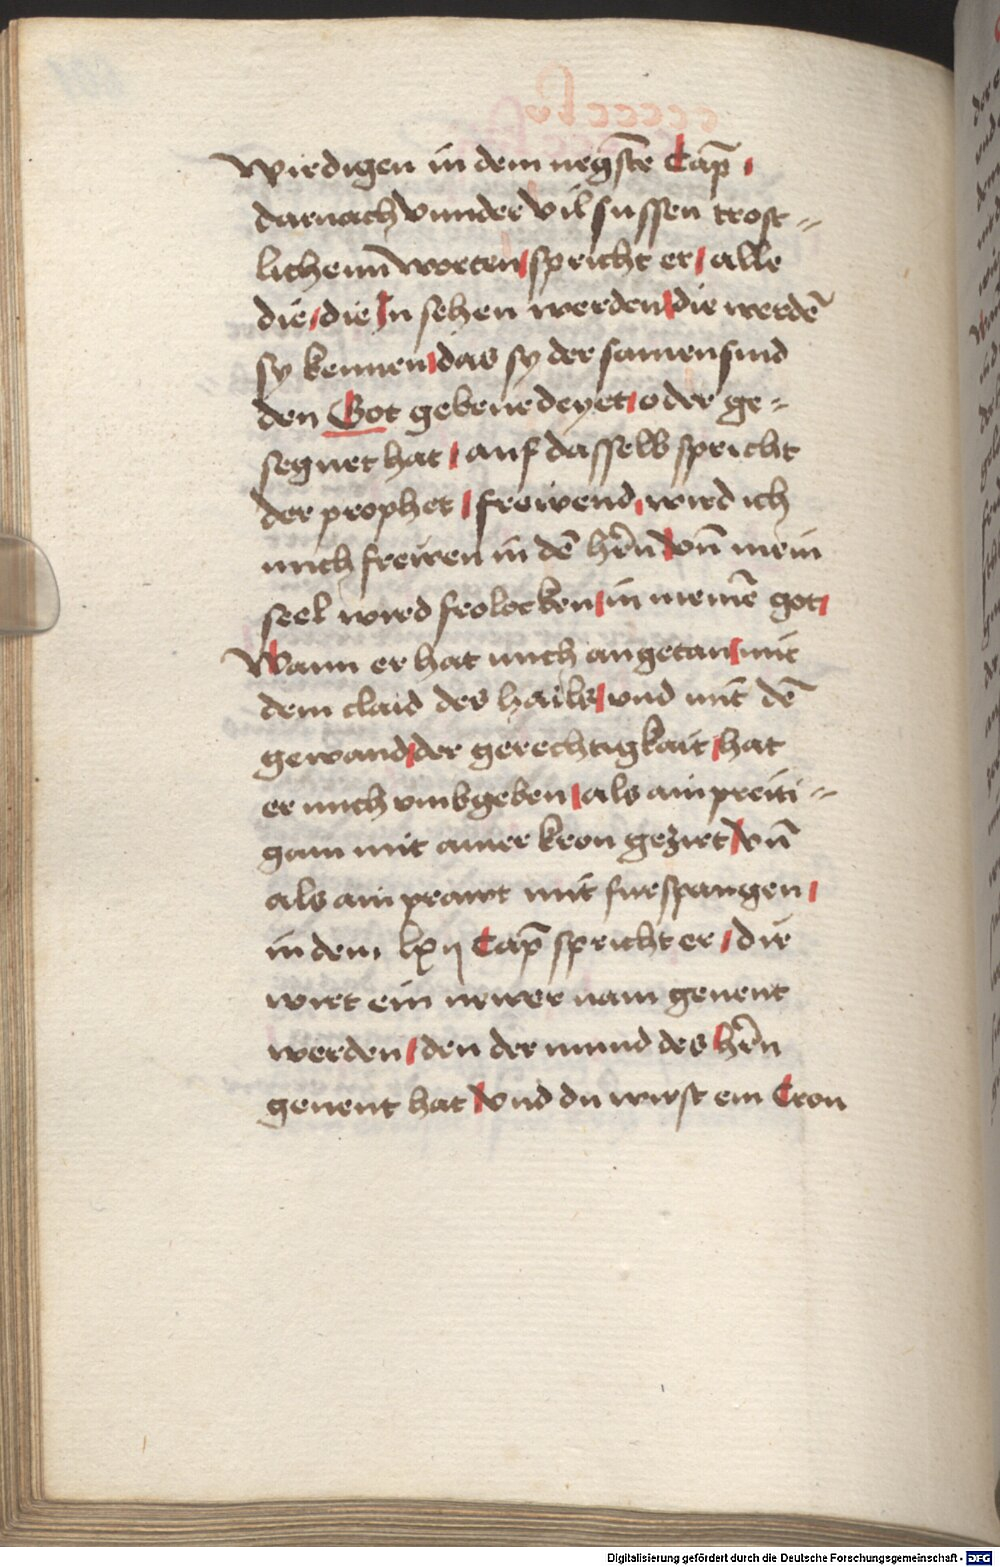 wirdigen in dem negstē Cap̄ /
darnach vnnder vil sussen trost⸗
lichenn worten / spricht er / alle
die / die In sehen werden / die werdē
sy kennen / das sy der samen sind
den Got gebenedeyet / oder ge⸗
segnet hat / auf dasselb spricht
der prophet / frewend / wird ich
mich frewen in dē hr̄n / vn̄ mein
seel wird frolocken / in meinē got /
Wann er hat mich angetan / mit
dem claid des hails / vnd mit dē
gewand / der gerechtigkait / hat
er mich vmbgeben / als ain preiti⸗
gam mit ainer kron gezirt / vn̄
als ain prawt mit furspangen /
in dem lxij Cap̄ spricht er / dir
wirt ein newer nam genent
werden / den der mund des hr̄n
genent hat / vnd du wirst ein Cron
Digitalisierung gefördert durch die Deutsche Forschungsgemeinschaft - DFG